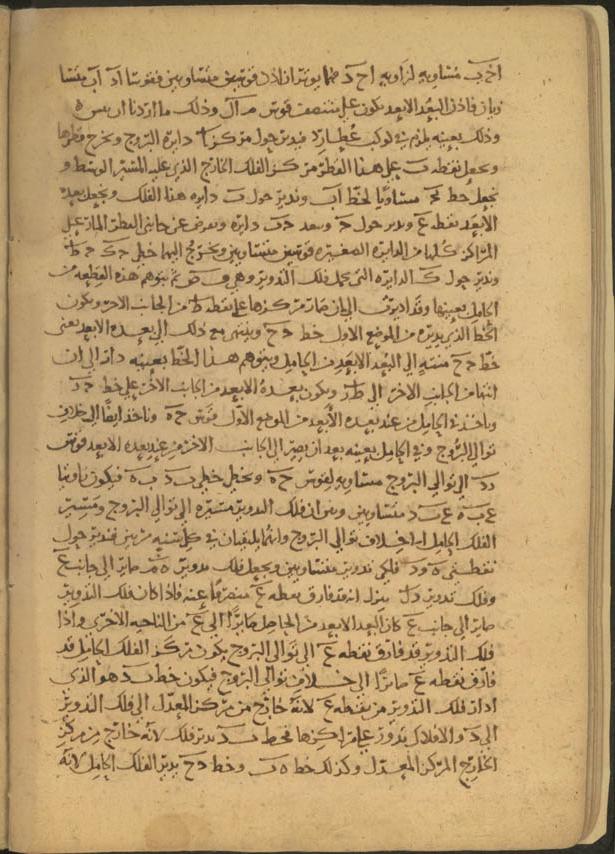 اح ب مساويه لزاويه اح د فبين ان قوسين متساويين فقوسا اد آب متسا
ويان فاذن البعد الابعد يكون على منتصف قوس وذلك ما اردنا ان نبين ه
وذلك بعينه يلزم في كوكب عطارد فيدير حول مركز آ دايرة البروج ونخرج قطرها
ونجعل نقطه ب على هذا القطر مركز الفلك الخارج الذي عليه المسير الوسط و
نجعل خط مساويا لخط آب وندير حول ب دايره هذا الفلك ونجعل بعده
الابعد نقطه ع وندير حول ح وببعد ح ب دايره ونفرض عن جانبي القطر المار على
المراكز كلها من الدايره الصغيره قوسين متساويين ونخرج اليهما خطي
وندير حول ك الدايره التي تحمل فلك التدوير وهي ثم نتوهم هذه القطعه من
الحامل بعينها وقد اديرت الى ان صارت مركزها على نقطه ط من الجانب الاخر ويكون
الخط الذي يديره من الموضع الاول خط د ح وينتهي مع ذلك الى بعده الابعد نعني
خط ح منته الى البعد الابعد من الحامل ونتوهم هذا الخط بعينه دار الى ان
انتها من الجانب الاخر الى ط ويكون بعده الابعد من الجانب الاخر على خط
وناخذ في الحامل من عند بعده الابعد من الموضع الاول قوس ح ه وناخذ ايضا الى خلاف
توالي البروج وفي الحامل بعينه بعد ان يصير الى الجانب الاخر من عند بعده الابعد قوس
الى توالي البروج مساويه لقوس ح ه ونخط خطي ب د ب ه فيكون زاويتا
ع ب ه ع ب د متساويتين وبين ان فلك التدوير مسيره الى توالي البروج ومسير
الفلك الحامل الى خلاف توالي البروج وانهما يلتقيان في كل سنه مرتين فندير حول
نقطتي ه و د فلكي تدوير متساويين ونجعل فلك تدوير ه صايرا الى جانب ع
وفلك تدوير د بمنزله انه قد فارق نقطه ع منصرفا عنه فاذا كان فلك التدوير
صايرا الى جانب ع كان البعد الابعد من الحامل صايرا الى ع من الناحيه الاخرى واذا
فلك التدوير قد فارق نقطه ع الى توالي البروج يكون مركز الفلك الحامل قد
فارق نقطه ع صايرا الى خلاف توالي البروج فيكون خط ب د هو الذي
ادار فلك التدوير من نقطه ع لانه خارج من مركز المعدل الى فلك التدوير
الى د والافلاك تدور على مراكزها فخط ب د يدير فلك لانه خارج من مركز
الخارج المركز المعدل وكذلك خط ه ب وخط د ح يدير الفلك الحامل لانه